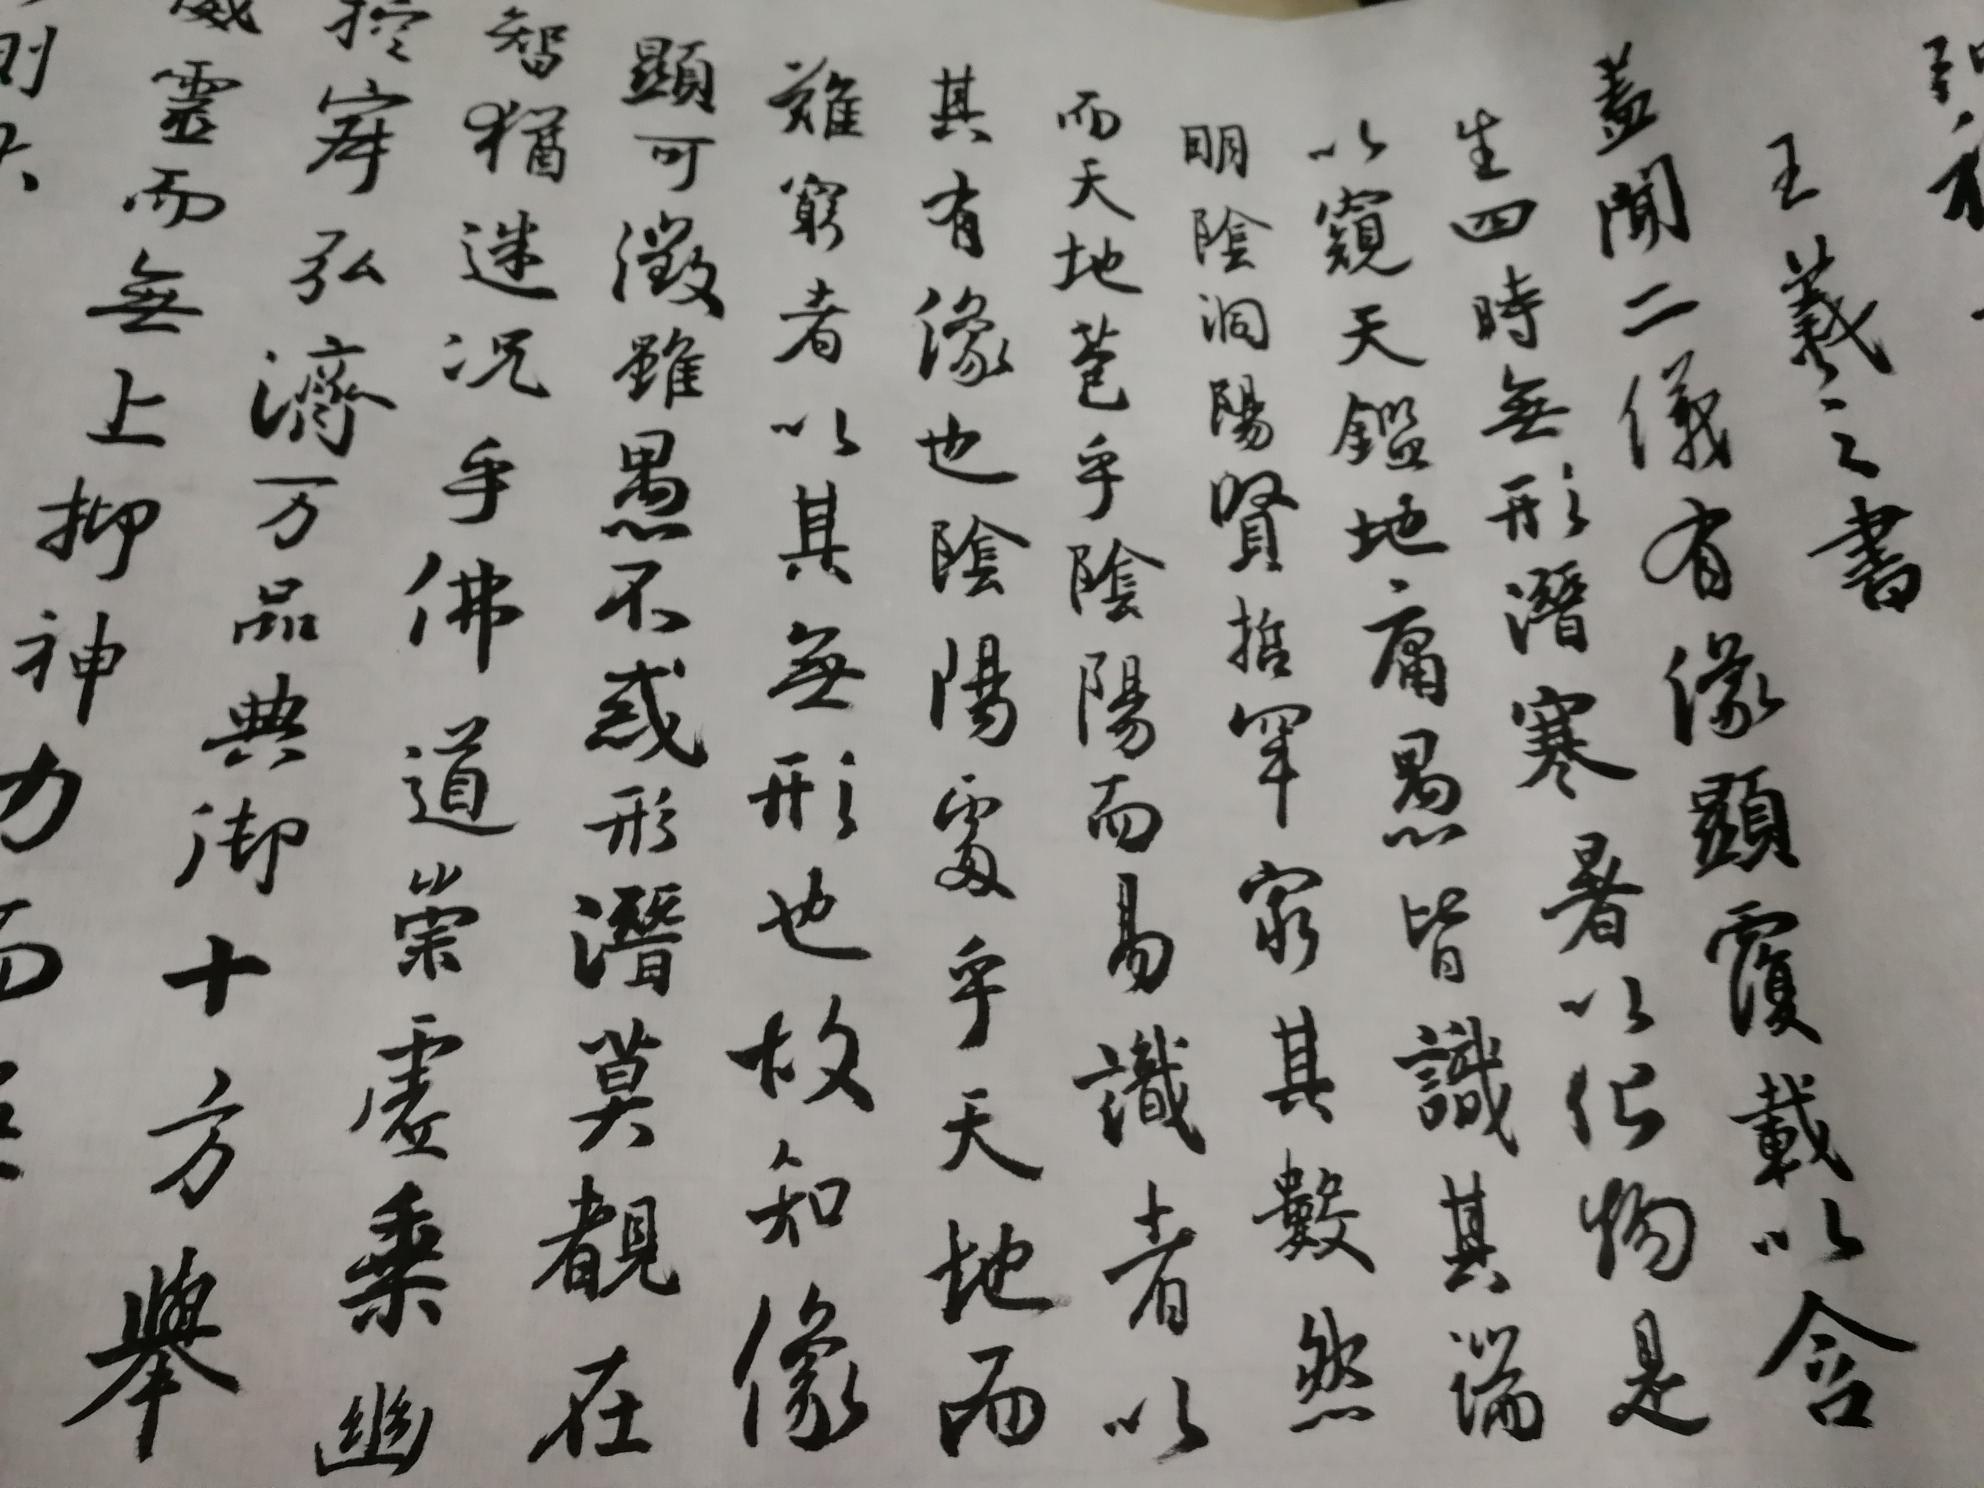 王羲之書
蓋聞二儀有像顯覆載以含
生四時無形潛寒暑以化物是
以窺天鑑地庸愚皆識其端
明陰洞陽賢哲罕窮其數然
而天地苞乎陰陽而易識者以
其有像也陰陽處乎天地而
難窮者以其無形也故知像
顯可徵雖愚不惑形潛莫覩在
智猶迷況乎佛道崇虛乘幽
控寂弘濟万品典御十方舉
威靈而無上抑神力而
則大